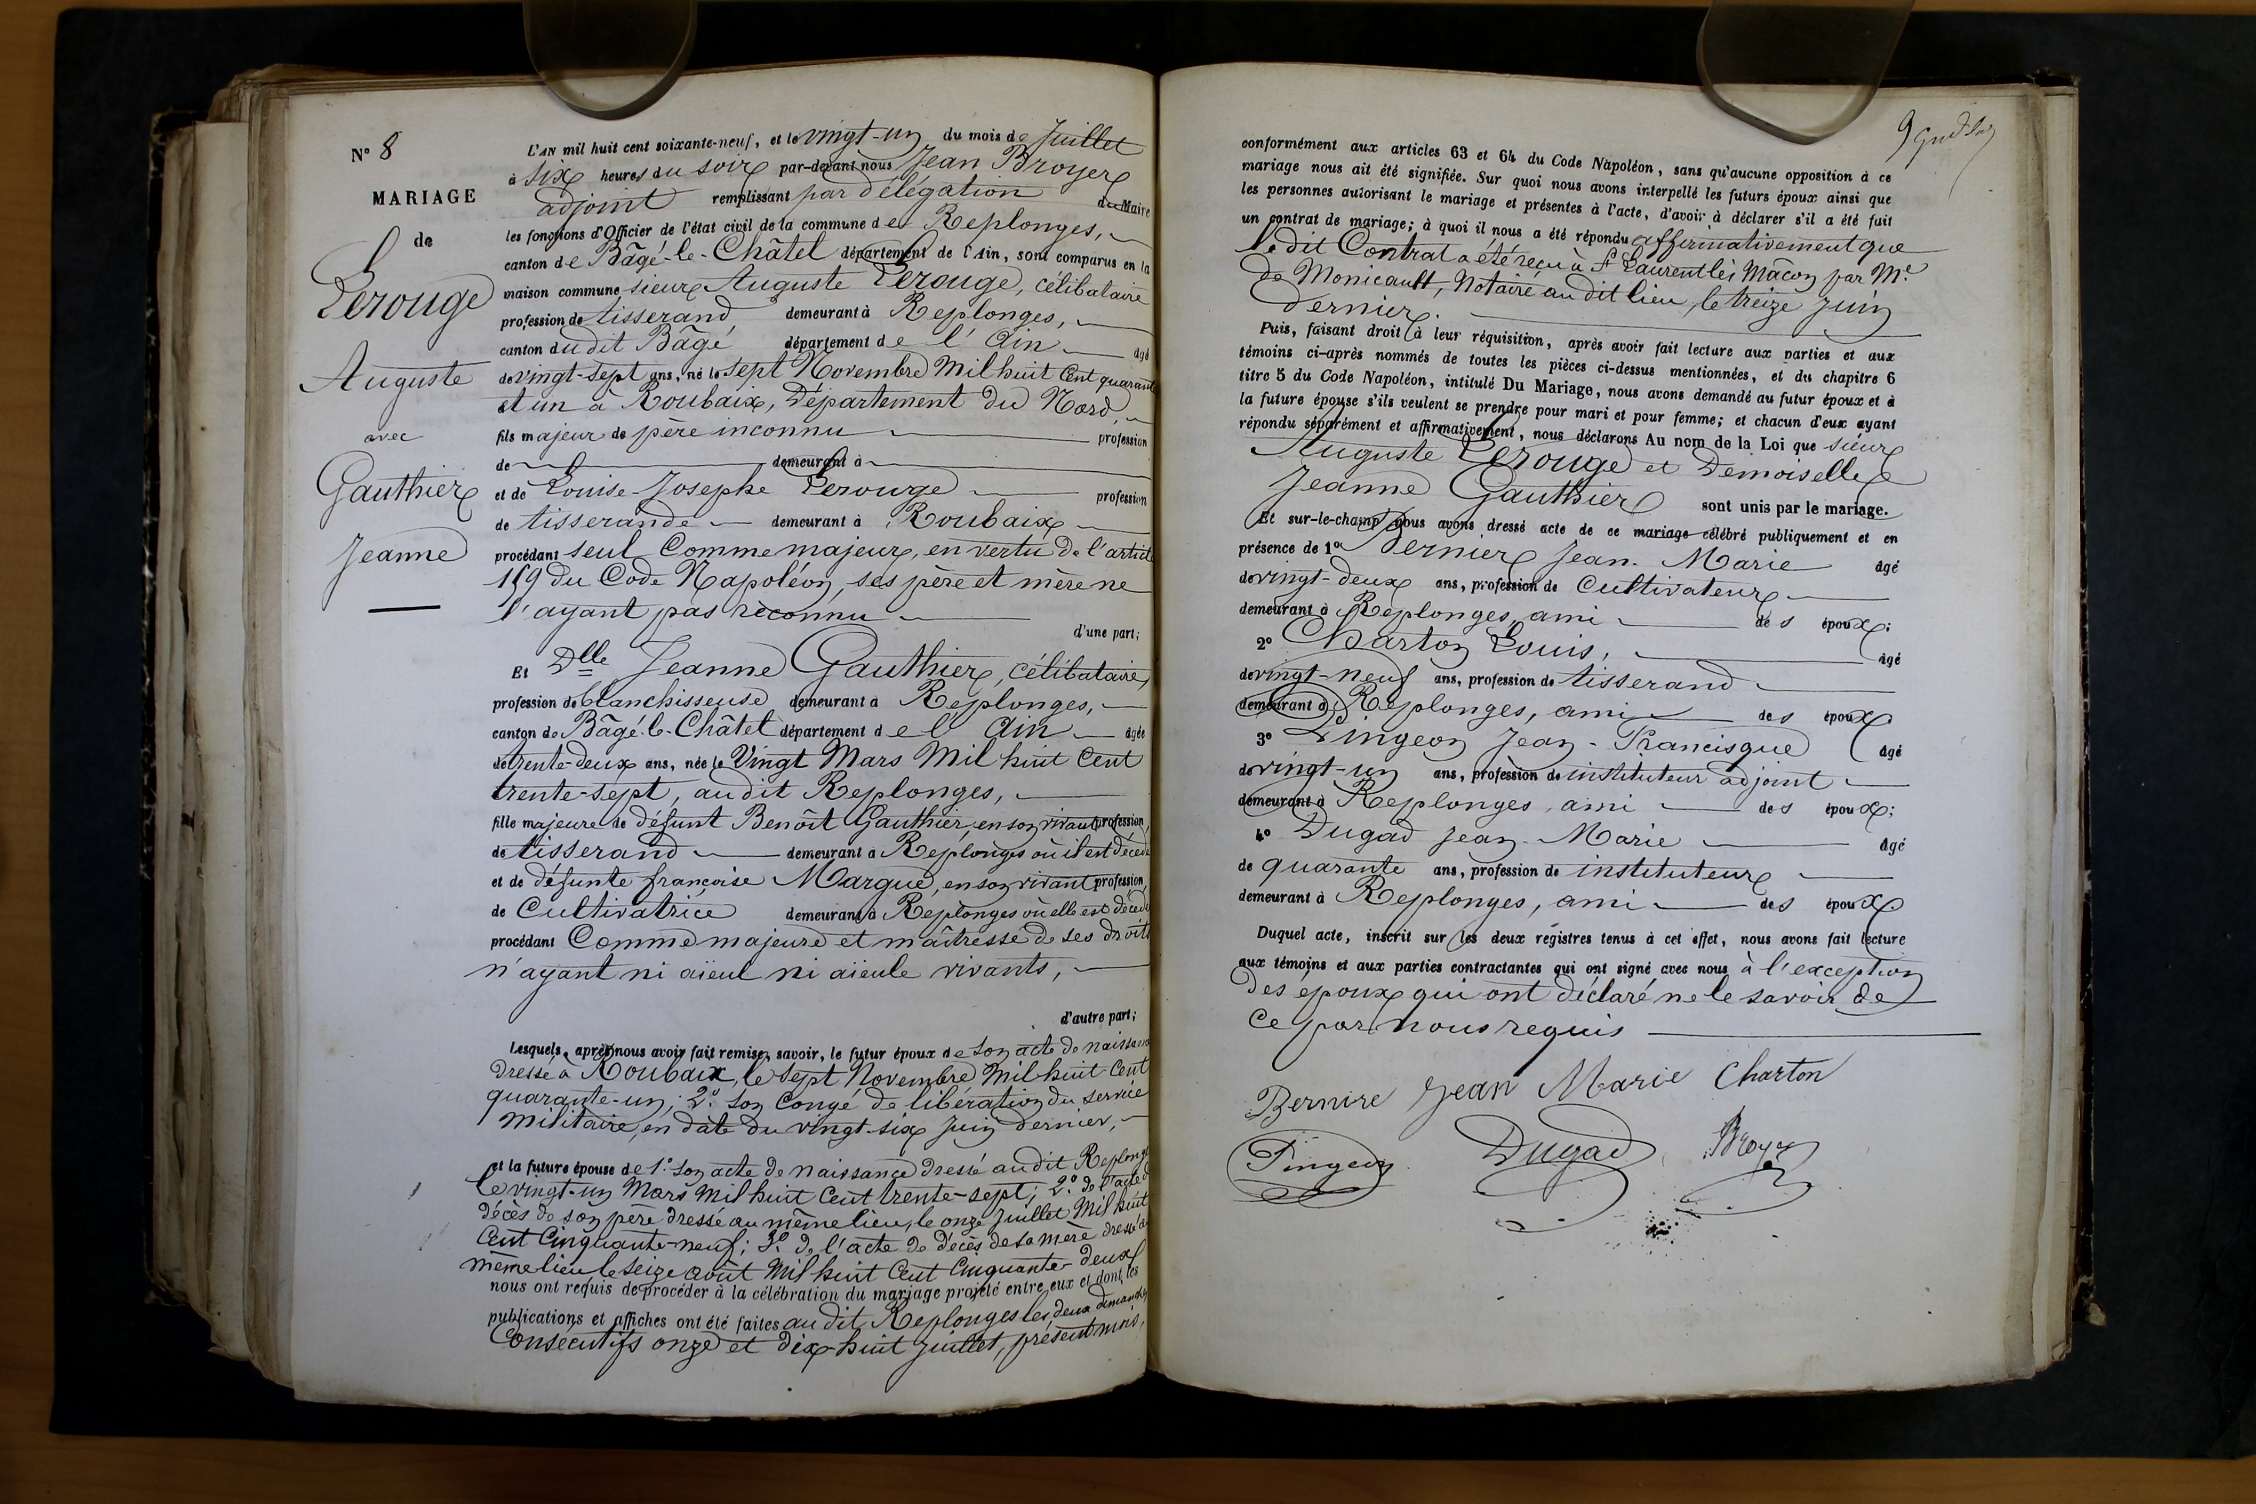 N° 8
MARIAGE
de
Lerouge
Auguste
avec
Gauthier
Jeanne
L'AN mil huit cent soixante-neuf, et le vingt-un du mois de Juillet
à six heures du soir par-devant nous Jean Broyer
adjoint remplissant par délégation du Maire
les fonctions d'Officier de l'état civil de la commune de Replonges,
canton de Bâgé-le-Châtel département de l'Ain, sont comparus en la
maison commune sieur Auguste Lerouge, célibataire
profession de tisserand demeurant à Replonges,
canton du dit Bâgé département de l'Ain âgé
de vingt-sept ans, né le sept Novembre Mil huit Cent quarante
et un à Roubaix, Département du Nord
fils majeur de père inconnu profession
de demeurant à
et de Louise Josephe Lerouge profession
de tisserande demeurant à Roubaix
procédant seul Comme majeur, en vertu de l'article
159 du Code Napoléon, ses père et mère ne
l'ayant pas reconnu
d'une part;
Et Dlle Jeanne Gauthier, célibataire,
profession de blanchisseuse demeurant à Replonges,
canton de Bâgé-le-Châtel département de l'Ain âgée
de trente-deux ans, née le Vingt Mars Mil huit Cent
trente-sept, au dit Replonges,
fille majeure de défunt Benoît Gauthier, en son vivant profession
de tisserand demeurant à Replonges où il est décédé
et de défunte françoise Margue, en son vivant profession
de Cultivatrice demeurant à Replonges où elle est décédée
procédant Comme majeure et maîtresse de ses droits
n'ayant ni aïeul ni aïeule vivants,
d'autre part;
Lesquels, après nous avoir fait remise, savoir, le futur époux de son acte de naissance
dressé à Roubaix, le sept Novembre Mil huit Cent
quarante-un; 2° son Congé de libération du service
militaire, en date du vingt-six Juin dernier,
et la future épouse de 1° son acte de naissance dressé au dit Replonges
le vingt-un Mars Mil huit Cent trente-sept; 2° de l'acte de
décès de son père dressé au même lieu, le onze Juillet Mil huit
Cent Cinquante-neuf; 3° de l'acte de décès de sa mère dressé au
même lieu le seize août Mil huit Cent Cinquante-deux
nous ont requis de procéder à la célébration du mariage projeté entre eux et dont les
publications et affiches ont été faites au dit Replonges les deux dimanches
Consécutifs onze et dix-huit Juillet, présent mois,
9
conformément aux articles 63 et 64 du Code Napoléon, sans qu'aucune opposition à ce
mariage nous ait été signifiée. Sur quoi nous avons interpellé les futurs époux ainsi que
les personnes autorisant le mariage et présentes à l'acte, d'avoir à déclarer s'il a été fait
un contrat de mariage; à quoi il nous a été répondu affirmativement que
le dit Contrat a été reçu à St Laurent lès Mâcon par Me
de Monicault, Notaire au dit lieu, le treize Juin
dernier.
Puis, faisant droit à leur réquisition, après avoir fait lecture aux parties et aux
témoins ci-après nommés de toutes les pièces ci-dessus mentionnées, et du chapitre 6
titre 5 du Code Napoléon, intitulé Du Mariage, nous avons demandé au futur époux et à
la future épouse s'ils veulent se prendre pour mari et pour femme; et chacun d'eux ayant
répondu séparément et affirmativement, nous déclarons Au nom de la Loi que sieur
Auguste Lerouge et Demoiselle
Jeanne Gauthier sont unis par le mariage.
Et sur-le-champ nous avons dressé acte de ce mariage célébré publiquement et en
présence de 1° Bernier Jean-Marie âgé
de vingt-deux ans, profession de Cultivateur
demeurant à Replonges, ami des époux;
2° Charton Louis, âgé
de vingt-neuf ans, profession de tisserand
demeurant à Replonges, ami des époux
3° Pingeon Jean-Francisque âgé
de vingt-un ans, profession de instituteur adjoint
demeurant à Replonges, ami des époux;
4° Dugad Jean-Marie âgé
de quarante ans, profession de instituteur
demeurant à Replonges, ami des époux
Duquel acte, inscrit sur les deux régistres tenus à cet effet, nous avons fait lecture
aux témoins et aux parties contractantes qui ont signé avec nous à l'exception
des époux qui ont déclaré ne le savoir de
ce par nous requis
Bernire Jean Marie Charton
Pingeon Dugad Broyer